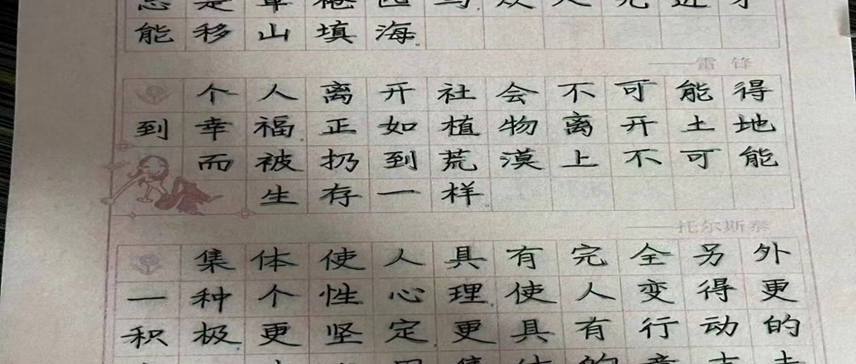 能移山填海
——雷锋
个人离开社会不可能得
到幸福正如植物离开土地
而被扔到荒漠上不可能
生存一样
——托尔斯泰
集体使人具有完全另外
一种个性心理使人变得更
积极更坚定更具有行动的